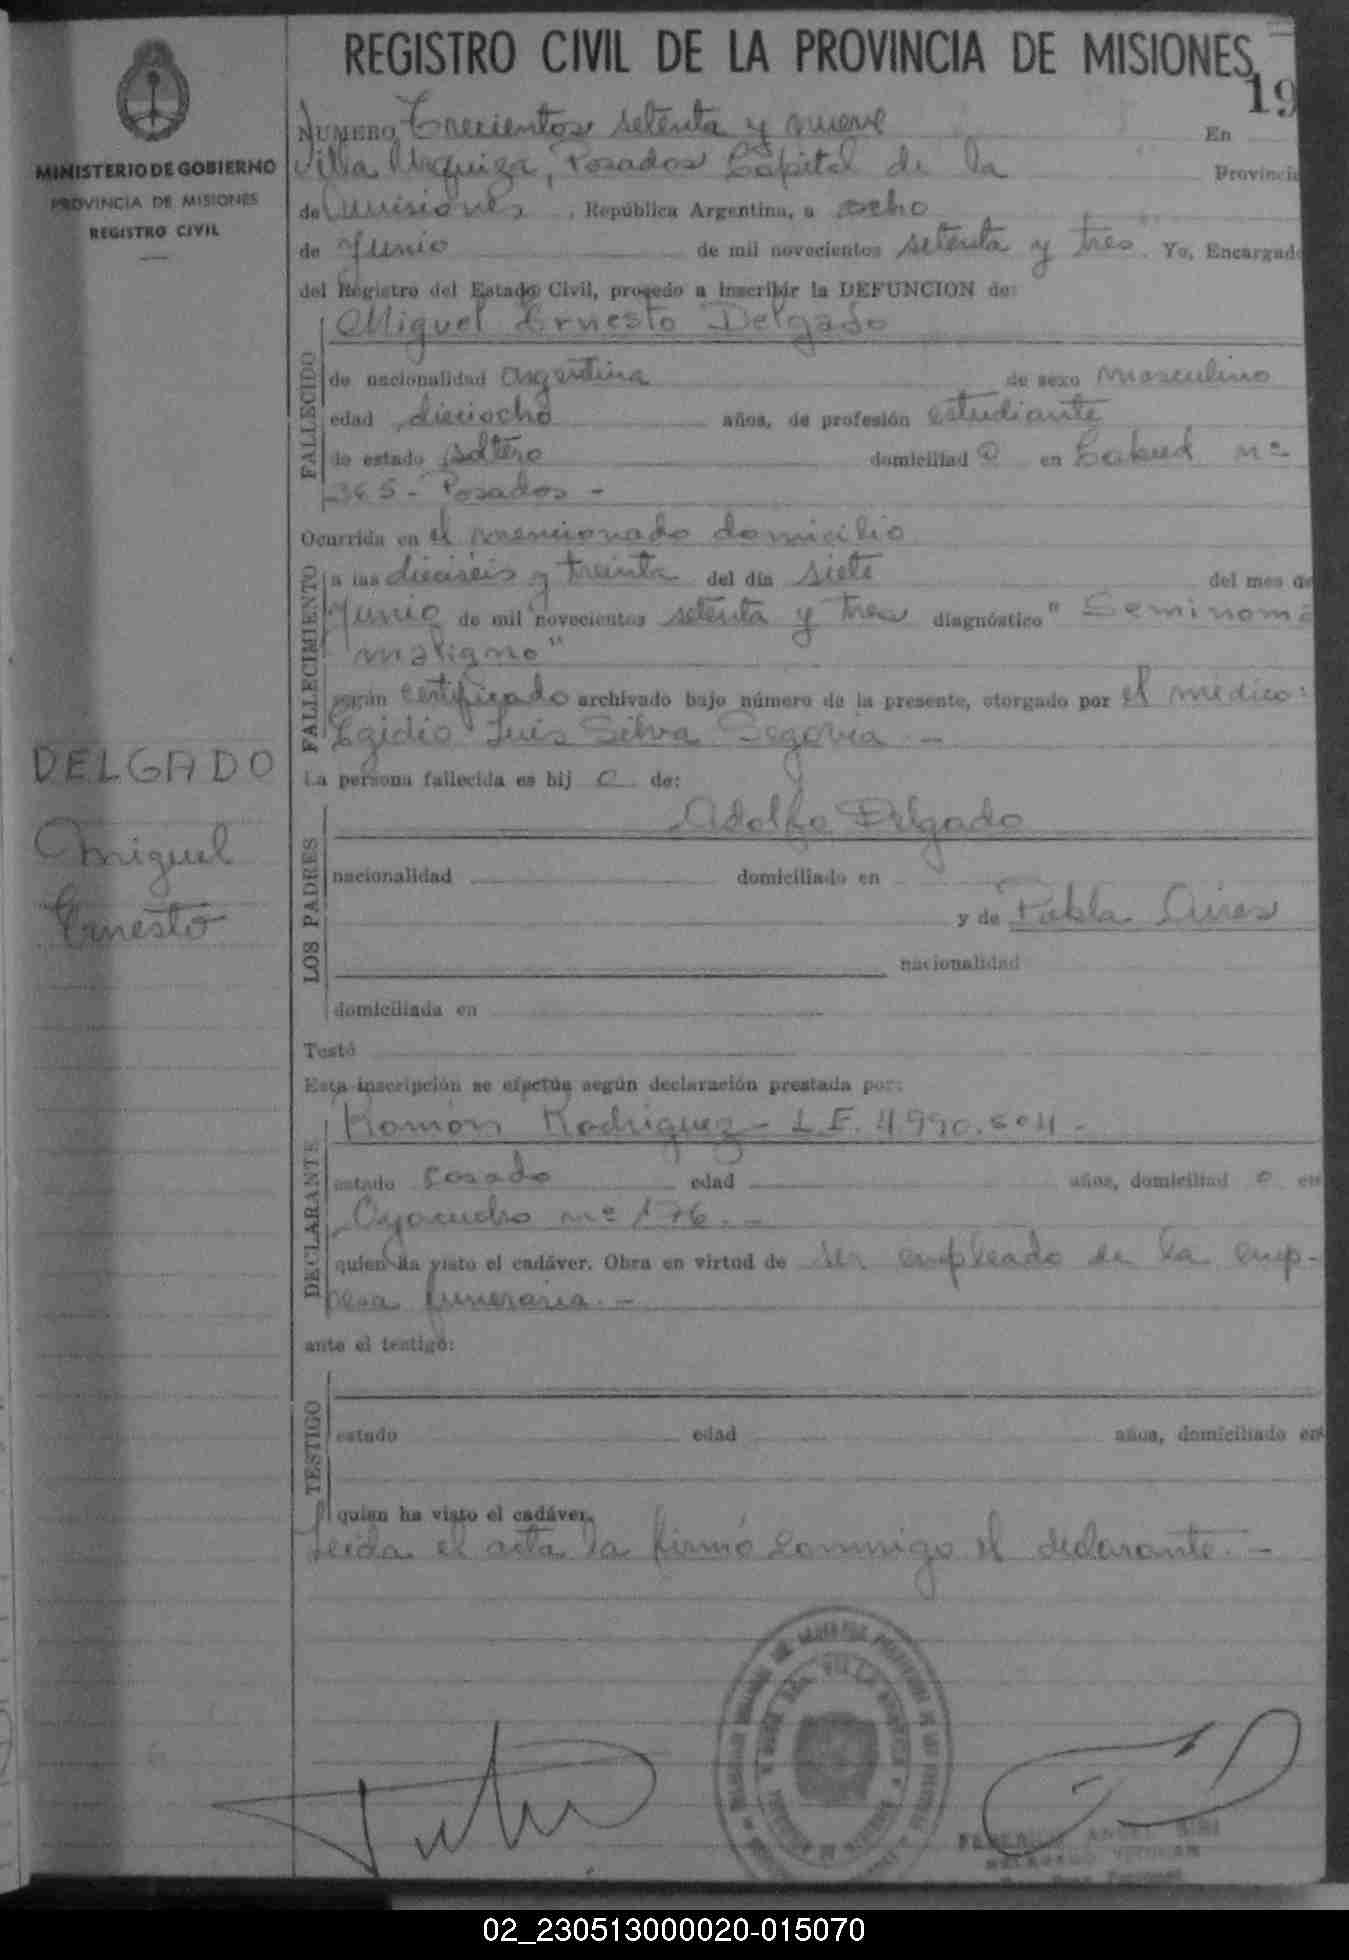 REGISTRO CIVIL DE LA PROVINCIA DE MISIONES
19
MINISTERIO DE GOBIERNO
PROVINCIA DE MISIONES
REGISTRO CIVIL
NUMERO Trecientos setenta y nueve En
Villa Urquiza, Posadas Capital de la Provincia
de Misiones, República Argentina, a ocho
de Junio de mil novecientos setenta y tres Yo, Encargado
del Registro del Estado Civil, procedo a inscribir la DEFUNCION de:
FALLECIDO
Miguel Ernesto Delgado
de nacionalidad argentina de sexo masculino
edad dieciocho años, de profesión estudiante
de estado soltero domiciliad o en Nº
365 - Posadas -
Ocurrida en el mencionado domicilio
FALLECIMIENTO
a las dieciséis y treinta del día siete del mes de
Junio de mil novecientos setenta y tres diagnóstico "Seminoma
maligno"
según certificado archivado bajo número de la presente, otorgado por el médico:
Egidio Luis Silva Segovia. -
La persona fallecida es hij o de:
LOS PADRES
Adolfo Delgado
nacionalidad domiciliado en
y de Pabla Aires
nacionalidad
domiciliada en
Testó
Esta inscripción se efectúa según declaración prestada por:
DECLARANTE
Ramón Rodriguez - L.E. 4.990.504 -
estado casado edad años, domiciliad o en
Ayacucho nº 176. -
quien ha visto el cadáver. Obra en virtud de ser empleado de la emp-
resa funeraria. -
ante el testigo:
TESTIGO
estado edad años, domiciliado en
quien ha visto el cadáver.
Leída el acta la firmó conmigo el declarante. -
DELGADO
Miguel
Ernesto
FEDERICO ANGEL SIRI
02_230513000020-015070